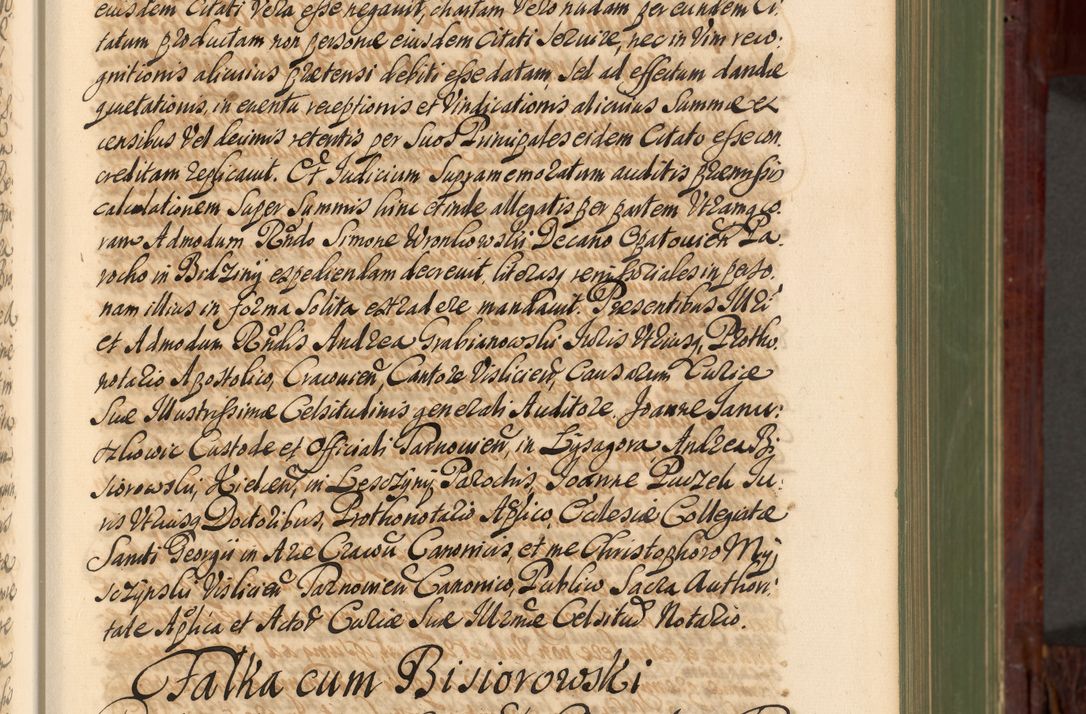 eiusdem Citati Vera esse negavit, chartam Vero nudam per eundem Ci:
tatum productam non personæ eiusdem Citati Servire, nec in Vim reco:
gnitionis alicuius prætensi debiti esse datam, Sed ad effectum dandæ
quietationis, in eventu receptionis et Vindicationis alicuius Summæ ex
censibus Vel decimis retentis per Suos Principales eidem Citato esse con
creditam replicavit. Et Judicium Supramemoratum auditis præmissis
calculationem Super Summis hinc et inde allegatis per partem Utramq3 co:
ram Admodum Rndo Simone Wronkowski Decano Opatovien Pa
rocho in Bidziny expediendam decrevit, literasq3 remissoriales in perso:
nam illius in forma Solita extradere mandavit. Præsentibus Illri
et Admodum Rndis Andrea Grabianowski Juris Utriusq3 Protho
notario Apostolico, Cracovien, Cantore Vislicien, Causarum Curiæ
Suæ Illustrissimæ Celsitudinis generali Auditore. Joanne Janu:
szkowic Custode et Officiali Tarnovien, in Lysagora Andrea Bi
siorowski, Kielcen, in Lesczyny Parochis, Joanne Puczek Ju:
ris Utriusq3 Doctoribus, Prothonotario Aplico, Ecclesiæ Collegiatæ
Sancti Georgii in Arce Cracov Canonicis, et me Christophoro Myj
sczynski Vislicien Tarnovien Canonico, Publico Sacra Authori
tate Aplica et Actor Curiæ Suæ Illrmæ Celsitud Notario.
Falka cum Bisiorowski